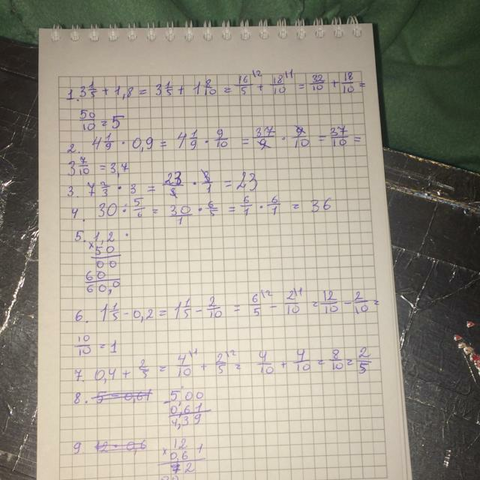 1. 3 1/5 + 1,8 = 3 1/5 + 1 8/10 = 16/5 \2 + 18/10 \1 = 32/10 + 18/10 =
50/10 = 5
2. 4 1/9 · 0,9 = 4 1/9 · 9/10 = 37/9 · 9/10 = 37/10 =
3 7/10 = 3,7
3. 7 2/3 · 3 = 23/3 · 3/1 = 23
4. 30 : 5/6 = 30/1 · 6/5 = 6/1 · 6/1 = 36
5. 1,2 ·
× 50
00
60
60,0
6. 1 1/5 - 0,2 = 1 1/5 - 2/10 = 6/5 \2 - 2/10 \1 = 12/10 - 2/10 =
10/10 = 1
7. 0,4 + 2/5 = 4/10 \1 + 2/5 \2 = 4/10 + 4/10 = 8/10 = 2/5
8. 5 - 0,61 5,00
0,61
4,39
9. 12 · 0,6 12
× 0,61
72